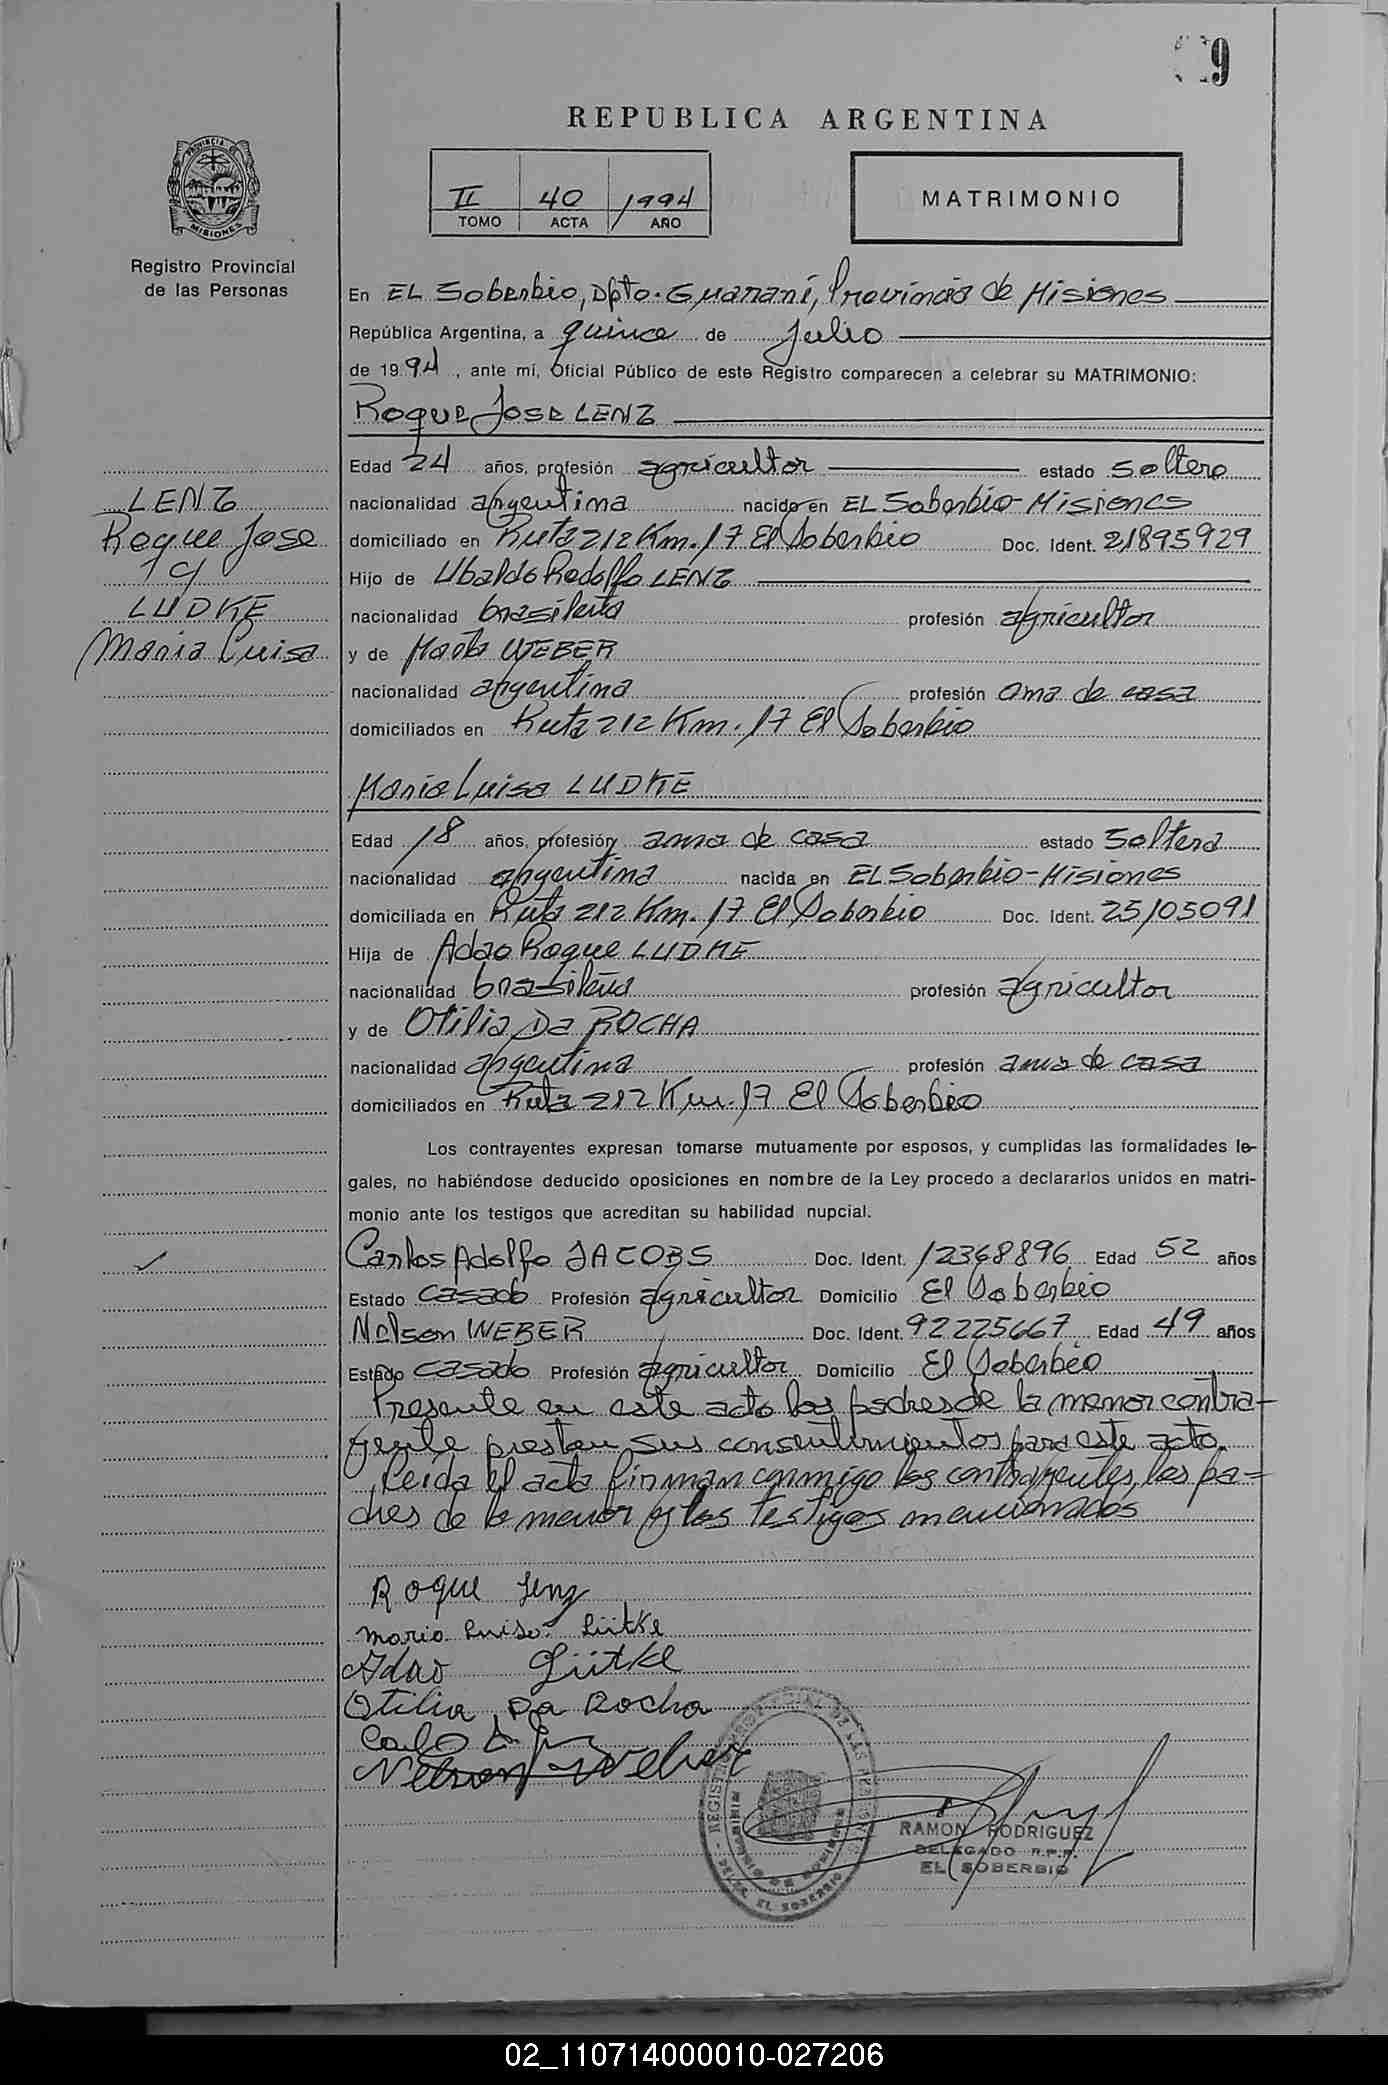 9
REPUBLICA ARGENTINA
II 40 1994
TOMO ACTA AÑO
MATRIMONIO
PROVINCIA DE
MISIONES
Registro Provincial
de las Personas
En EL Soberbio, Dpto. Guaraní, Provincia de Misiones
República Argentina, a quince de Julio
de 1994, ante mí, Oficial Público de este Registro comparecen a celebrar su MATRIMONIO:
Roque Jose LENZ
Edad 24 años, profesión agricultor estado soltero
LENZ
nacionalidad argentina nacido en EL Soberbio-Misiones
Roque Jose
domiciliado en Ruta 212 Km. 17 El Soberbio Doc. Ident. 21895929
y
Hijo de Ubaldo Rodolfo LENZ
LUDKE
nacionalidad brasileña profesión agricultor
Maria Luisa
y de Marta WEBER
nacionalidad argentina profesión ama de casa
domiciliados en Ruta 212 Km. 17 El Soberbio
Maria Luisa LUDKE
Edad 18 años, profesión ama de casa estado Soltera
nacionalidad argentina nacida en EL Soberbio-Misiones
domiciliada en Ruta 212 Km. 17 El Soberbio Doc. Ident. 25105091
Hija de Adao Roque LUDKE
nacionalidad brasileña profesión agricultor
y de Otilia Da ROCHA
nacionalidad argentina profesión ama de casa
domiciliados en Ruta 212 Km. 17 El Soberbio
Los contrayentes expresan tomarse mutuamente por esposos, y cumplidas las formalidades le-
gales, no habiéndose deducido oposiciones en nombre de la Ley procedo a declararlos unidos en matri-
monio ante los testigos que acreditan su habilidad nupcial.
Carlos Adolfo JACOBS Doc. Ident. 12368896 Edad 52 años
Estado casado Profesión agricultor Domicilio El Soberbio
Nelson WEBER Doc. Ident. 92225667 Edad 49 años
Estado casado Profesión agricultor Domicilio El Soberbio
Presente en este acto los padres de la menor contra-
yente prestan sus consentimientos para este acto.
Leida el acta firman conmigo los contrayentes, los pa=
dres de la menor y los testigos mencionados
Roque Lenz
Maria Luisa Lütke
Adao Lütke
Otilia Da Rocha
Nelson Weber
RAMON RODRIGUEZ
DELEGADO R.P.P.
EL SOBERBIO
02_110714000010-027206